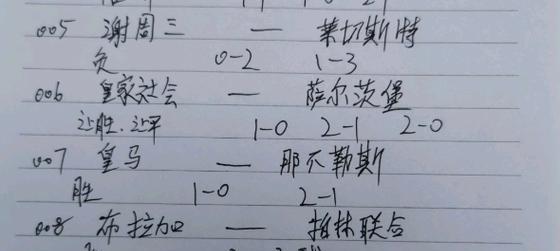 005 谢周三 — 莱切斯特
负 0-2 1-3
006 皇家社会 — 萨尔茨堡
让胜.让平 1-0 2-1 2-0
007 皇马 — 那不勒斯
胜 1-0 2-1
008 布拉加 — 柏林联合